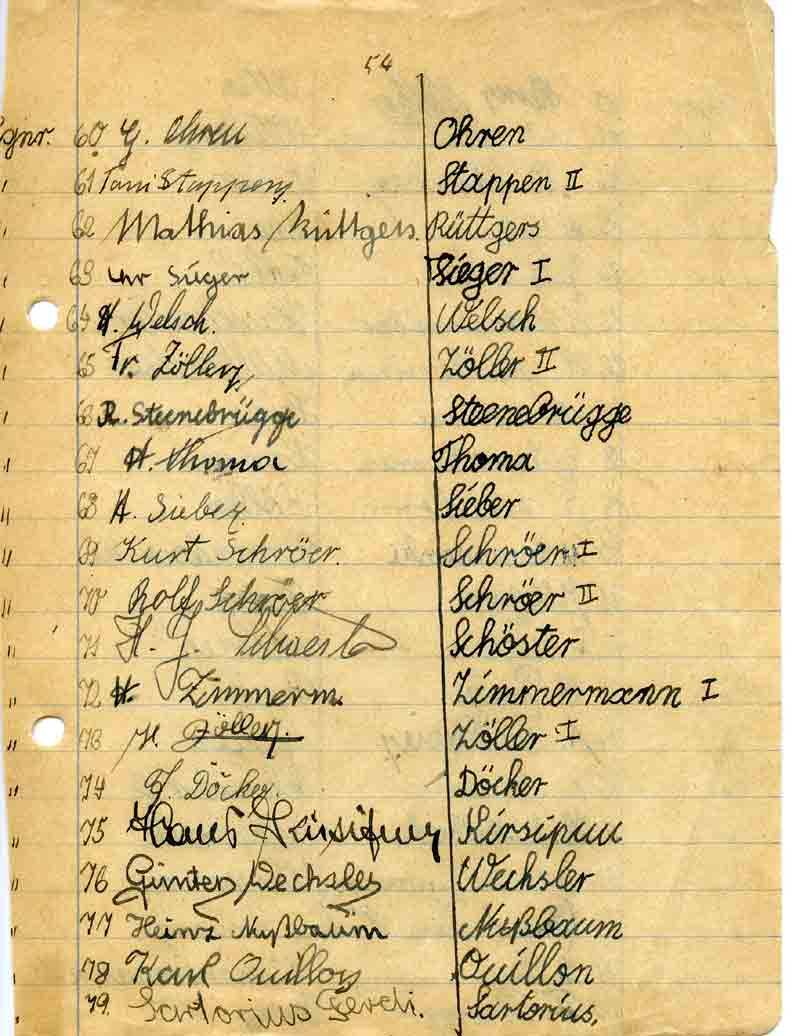 54
gnr. 60 G. Ohren Ohren
" 61 Toni Stappen Stappen II
" 62 Mathias Rüttgers. Rüttgers
" 63 Chr Sieger Sieger I
" 64 H. Welsch. Welsch
" 65 Fr. Zöller Zöller II
" 66 R. Steenebrügge Steenebrügge
" 67 H. Thoma Thoma
" 68 H. Sieber Sieber
" 69 Kurt Schröer. Schröer I
" 70 Rolf Schröer Schröer II
" 71 H. J. Schöster
" 72 H. Zimmerm. Zimmermann I
" 73 H. Zöller. Zöller I
" 74 Döcker. Döcker
" 75 Hans Kirsipuu
" 76 Günter Wechsler Wechsler
" 77 Heinz Nußbaum Nußbaum
" 78 Karl Ouillon Ouillon
79. Sartorius Sartorius.